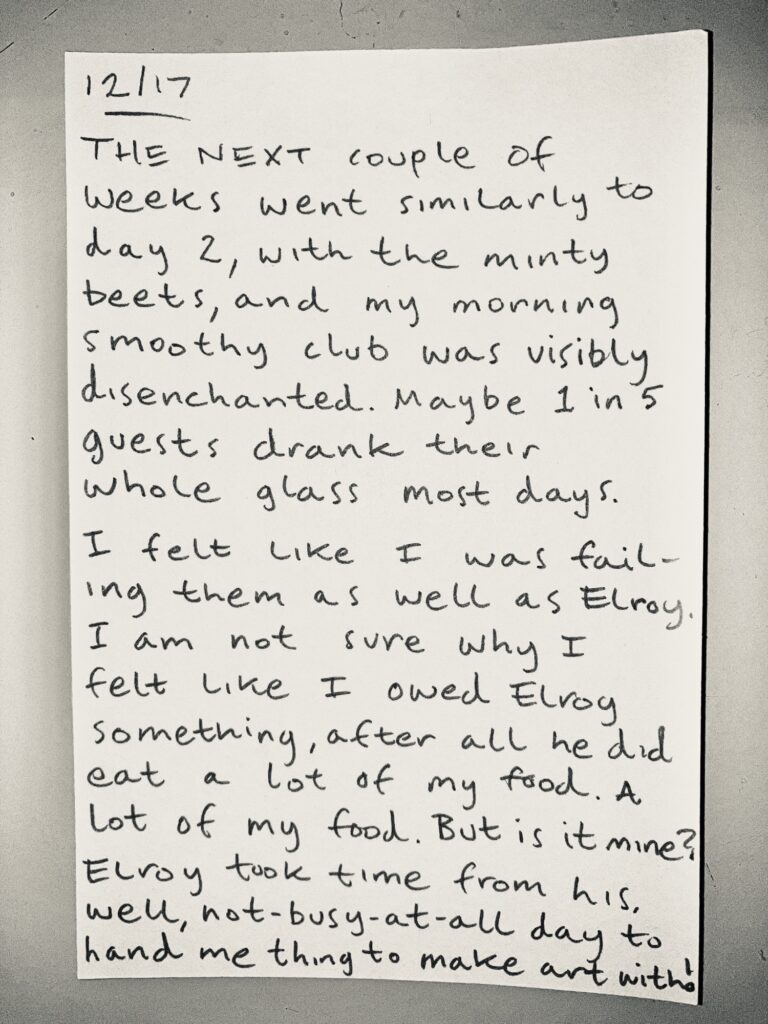 12/17
THE NEXT couple of
weeks went similarly to
day 2, with the minty
beets, and my morning
smoothy club was visibly
disenchanted. Maybe 1 in 5
guests drank their
whole glass most days.
I felt like I was fail-
ing them as well as Elroy.
I am not sure why I
felt like I owed Elroy
something, after all he did
eat a lot of my food. A
lot of my food. But is it mine?
Elroy took time from his,
well, not-busy-at-all day to
hand me thing to make art with!